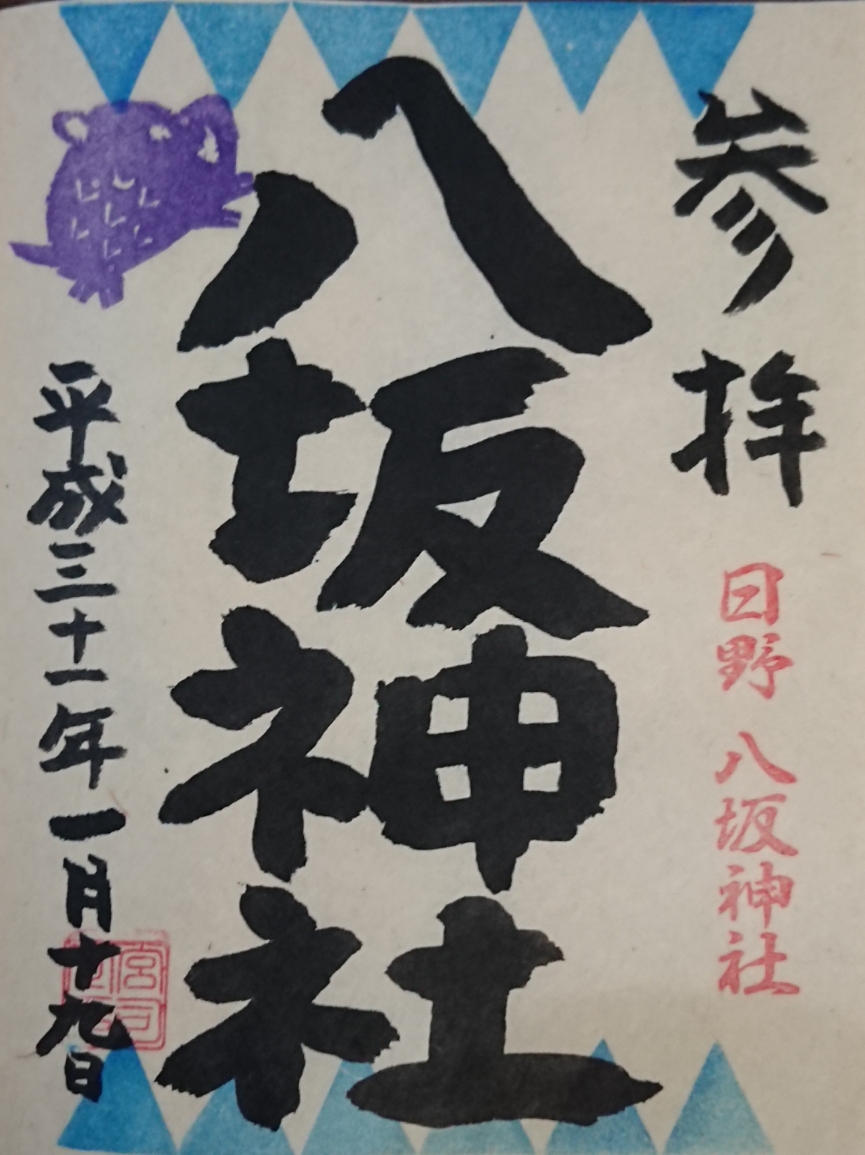 参拝
日野 八坂神社
八坂神社
平成三十一年一月十九日
宮司